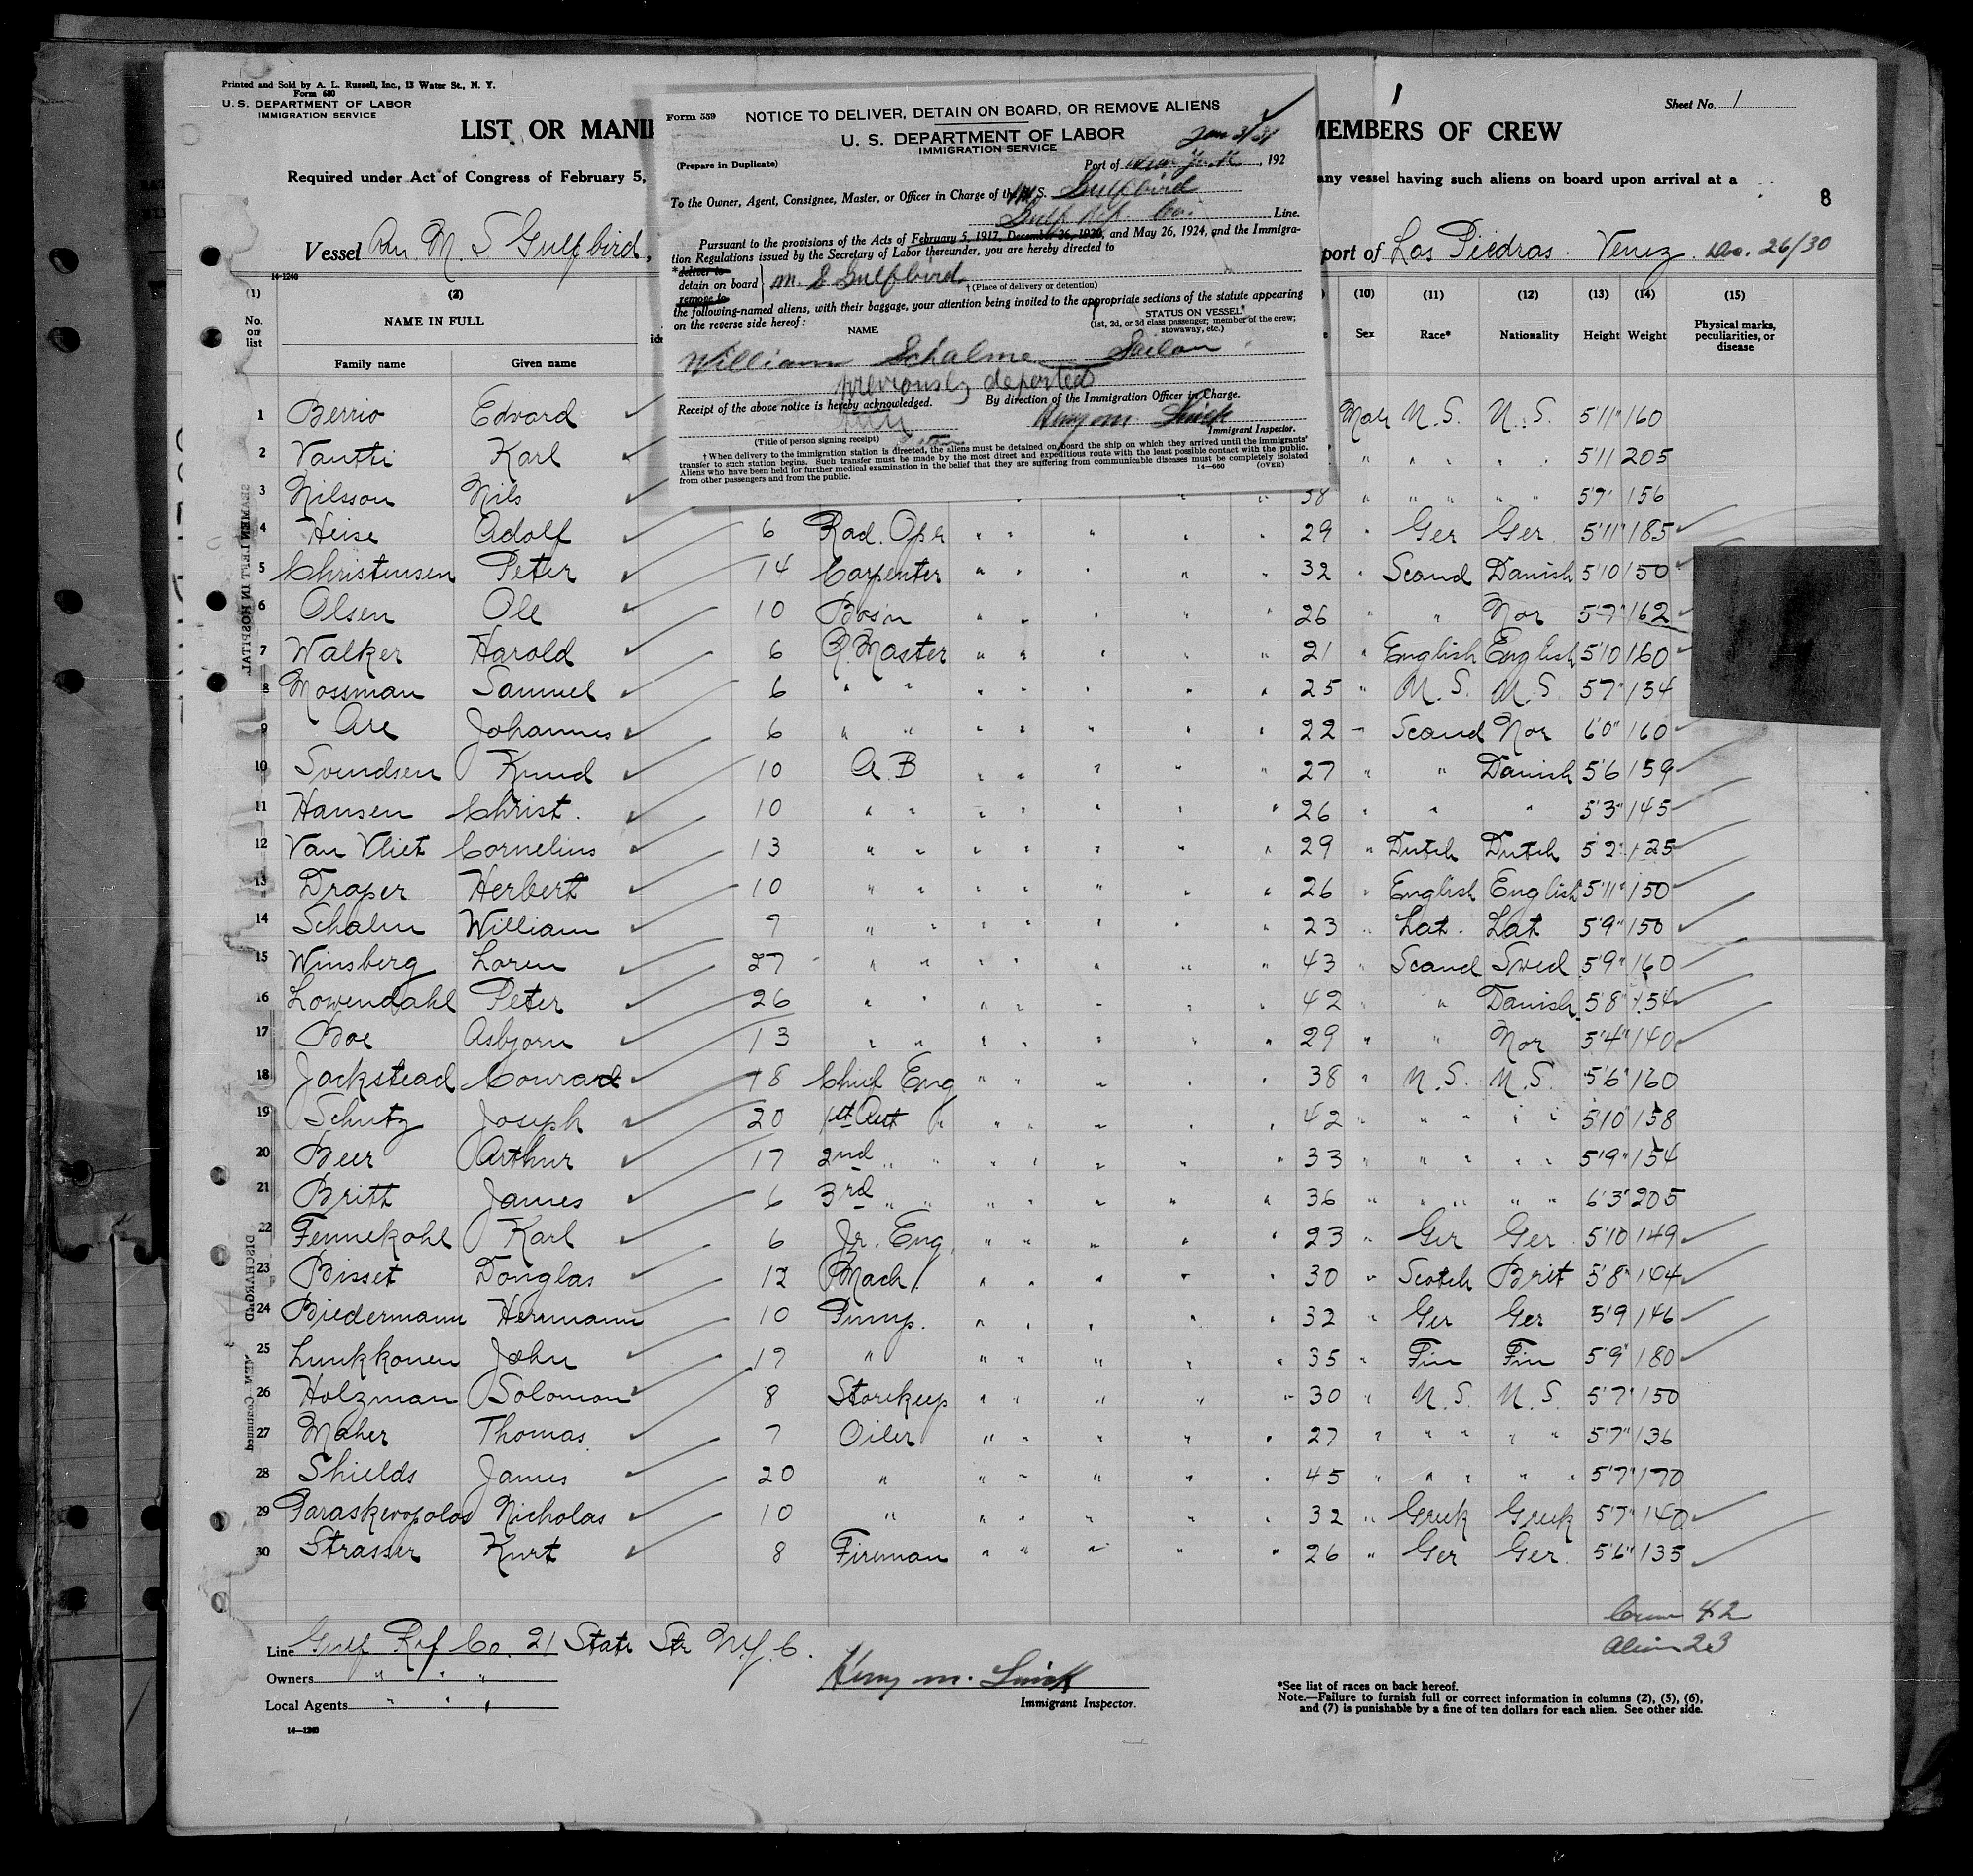 Printed and Sold by A. L. Russell, Inc., 13 Water St., N. Y.
Form 680
U. S. DEPARTMENT OF LABOR
IMMIGRATION SERVICE
LIST OR MANI
MEMBERS OF CREW
Sheet No. 1
Required under Act of Congress of February 5,
any vessel having such aliens on board upon arrival at a
8
Vessel Am. M. S Gulfbird,
port of Las Piedras. Venez. Dec. 26/30
14-1240
Form 559
NOTICE TO DELIVER, DETAIN ON BOARD, OR REMOVE ALIENS
U. S. DEPARTMENT OF LABOR
IMMIGRATION SERVICE
Jan 3/31
(Prepare in Duplicate)
Port of New York, 192
To the Owner, Agent, Consignee, Master, or Officer in Charge of the M. S. Gulfbird
Gulf Ref. Co. Line.
Pursuant to the provisions of the Acts of February 5, 1917, December 26, 1920, and May 26, 1924, and the Immigra-
tion Regulations issued by the Secretary of Labor thereunder, you are hereby directed to
*deliver to
detain on board M. S Gulfbird
remove to
†(Place of delivery or detention)
the following-named aliens, with their baggage, your attention being invited to the appropriate sections of the statute appearing
on the reverse side hereof:
NAME
STATUS ON VESSEL
(1st, 2d, or 3d class passenger; member of the crew;
stowaway, etc.)
William Schalme Sailor
previously deported
Receipt of the above notice is hereby acknowledged.
By direction of the Immigration Officer in Charge.
Immigrant Inspector.
(Title of person signing receipt)
†When delivery to the immigration station is directed, the aliens must be detained on board the ship on which they arrived until the immigrants'
transfer to such station begins. Such transfer must be made by the most direct and expeditious route with the least possible contact with the public.
Aliens who have been held for further medical examination in the belief that they are suffering from communicable diseases must be completely isolated
from other passengers and from the public.
14—660 (OVER)
(1) (2) (10) (11) (12) (13) (14) (15)
No. on list
NAME IN FULL
Family name Given name
Sex Race* Nationality Height Weight Physical marks, peculiarities, or disease
1 Berrio Edvard Male U.S. U.S. 5'11" 160
2 Vantti Karl " " " " " 5'11 205
3 Nilsson Nils 38 " " " " " 5'7" 156
4 Heise Adolf 6 Rad. Opr " " " " " 29 " Ger Ger 5'11" 185
5 Christensen Peter 14 Carpenter " " " " " 32 " Scand Danish 5'10 150
6 Olsen Ole 10 Bosn " " " " " 26 " " Nor 5'7" 162
7 Walker Harold 6 Q.Master " " " " " 21 " English English 5'10 160
8 Mossman Samuel 6 " " " " " " " 25 " U.S. U.S. 5'7" 134
9 Are Johannes 6 " " " " " " " 22 " Scand Nor 6'0" 160
10 Svendsen Knud 10 A.B " " " " " 27 " " Danish 5'6 159
11 Hansen Christ. 10 " " " " " " " 26 " " " 5'3" 145
12 Van Vliet Cornelius 13 " " " " " " " 29 " Dutch Dutch 5'2" 125
13 Draper Herbert 10 " " " " " " " 26 " English English 5'11" 150
14 Schalm William 7 " " " " " " " 23 " Lat. Lat 5'9" 150
15 Winsberg Loren 27 " " " " " " " 43 " Scand Swed 5'9" 160
16 Lowendahl Peter 26 " " " " " " " 42 " " Danish 5'8" 154
17 Boe Asbjorn 13 " " " " " " " 29 " " Nor 5'4" 140
18 Jackstead Conrad 18 Chief Eng " " " " " 38 " U.S. U.S. 5'6" 160
19 Schutz Joseph 20 1st Asst " " " " " " 42 " " " " " 5'10 158
20 Beer Arthur 17 2nd " " " " " " " 33 " " " " " 5'9" 154
21 Britt James 6 3rd " " " " " " " 36 " " " " " 6'3" 205
22 Fennekohl Karl 6 Jr. Eng. " " " " " 23 " Ger Ger 5'10 149
23 Bisset Douglas 12 Mach. " " " " " 30 " Scotch Brit 5'8" 164
24 Biedermann Hermann 10 Pump. " " " " " 32 " Ger Ger 5'9 146
25 Lunkkonen John 19 " " " " " " 35 " Fin Fin 5'9" 180
26 Holzman Solomon 8 Storekeep " " " " " 30 " U.S. U.S. 5'7" 150
27 Maher Thomas 7 Oiler " " " " " 27 " " " " " 5'7" 136
28 Shields James 20 " " " " " " 45 " " " " " 5'7" 170
29 Paraskevopolos Nicholas 10 " " " " " " 32 " Greek Greek 5'7" 140
30 Strasser Kurt 8 Fireman " " " " " 26 " Ger Ger. 5'6" 135
SEAMEN LEFT IN HOSPITAL
Crew 42
Alien 23
Line Gulf Ref Co. 21 State Str N.Y.C.
Owners " " "
Local Agents " " "
Immigrant Inspector.
14—1240
*See list of races on back hereof.
Note.—Failure to furnish full or correct information in columns (2), (5), (6),
and (7) is punishable by a fine of ten dollars for each alien. See other side.